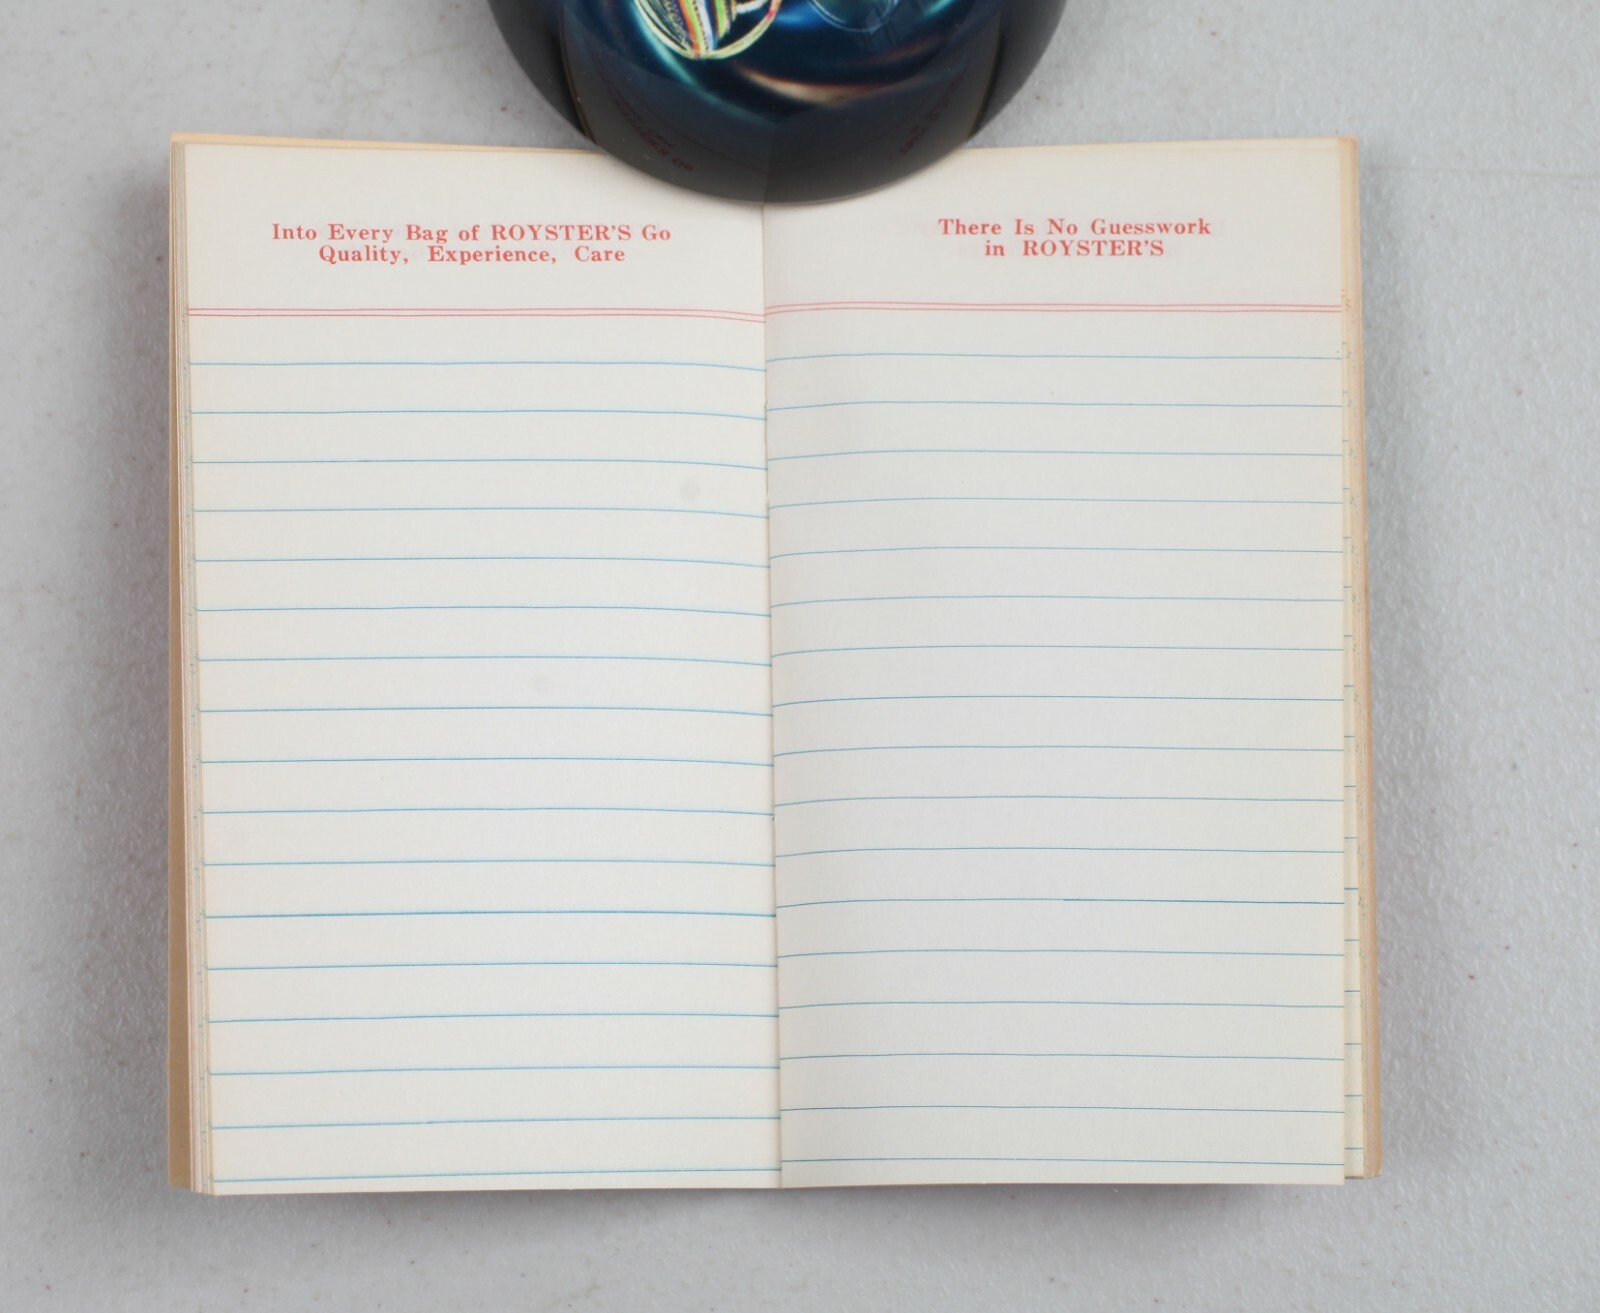 Into Every Bag of ROYSTER'S Go
Quality, Experience, Care
There Is No Guesswork
in ROYSTER'S